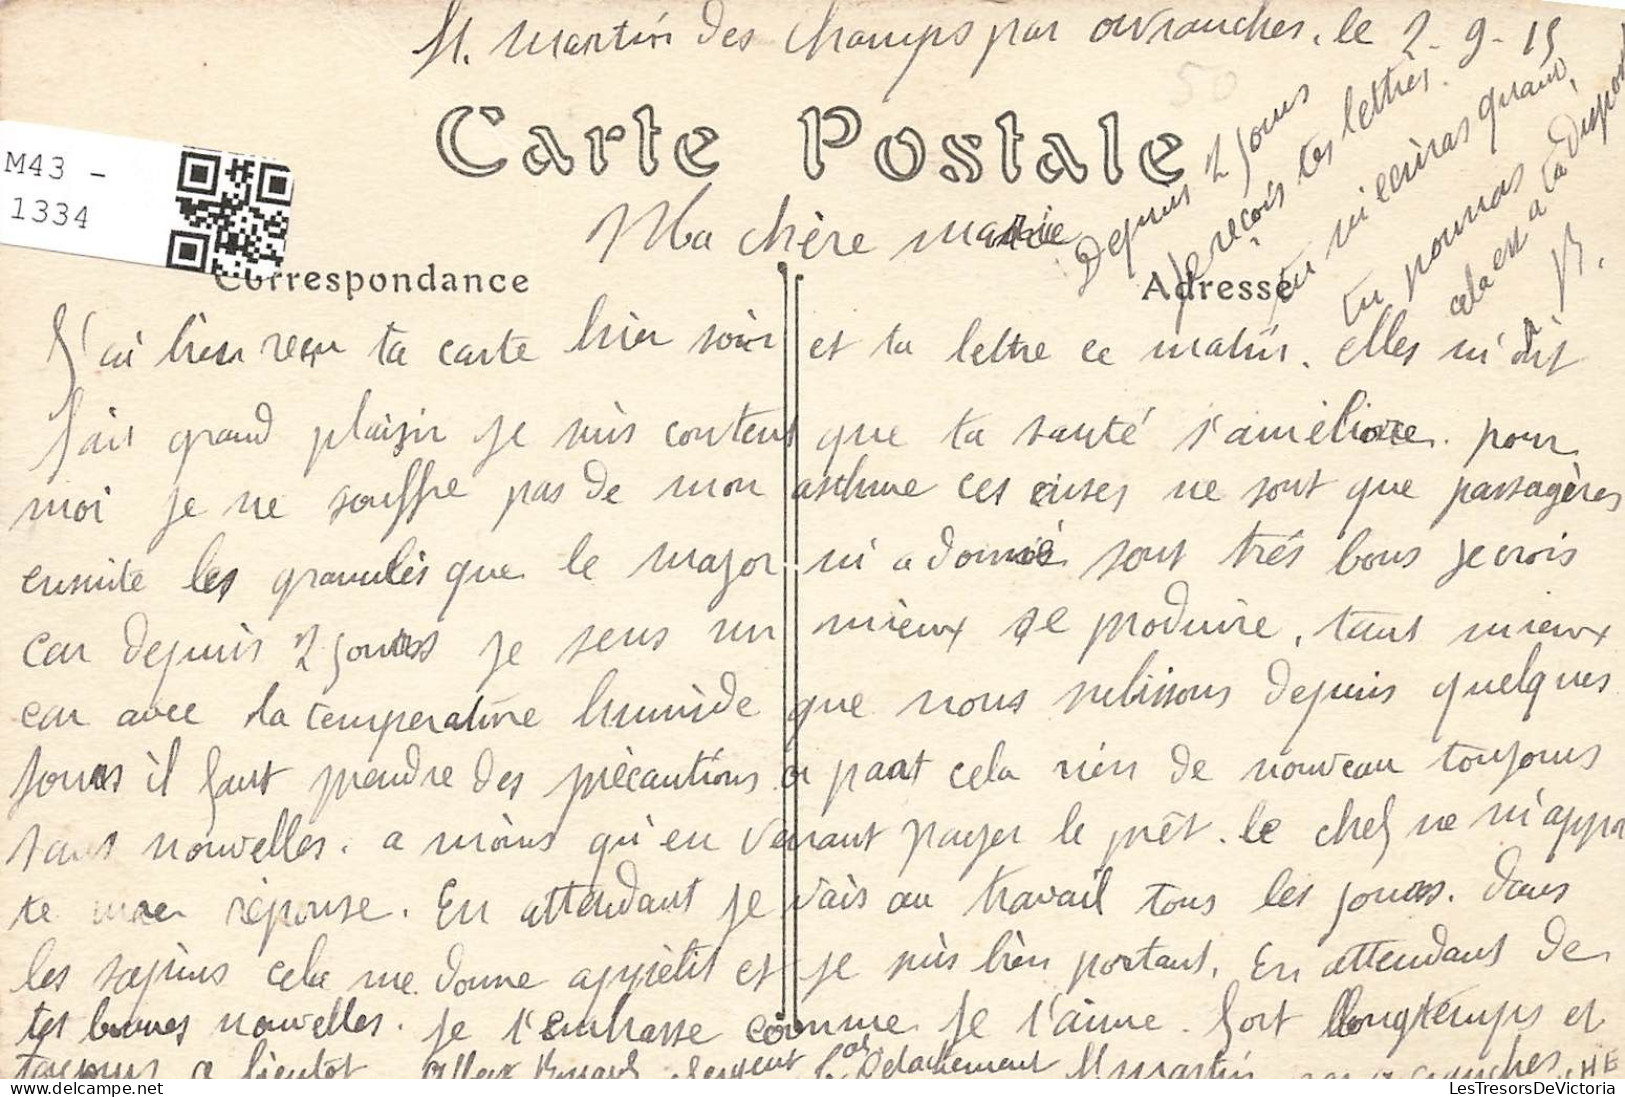 St. Martin des Champs par avranches. le 2-9-15
50
Carte Postale
M43 -
1334
Ma chère marie
Depuis 2 jours
je reçois tes lettres.
tu m'ecriras quand
tu pourras
cela est a ta dispo
B.
Correspondance
Adresse
J'ai bien reçu ta carte hier soir et ta lettre ce matin. elles m'ont
fait grand plaisir je suis content que ta santé s'améliore. pour
moi je ne souffre pas de mon asthme ces crises ne sont que passagères
ensuite les granulés que le major m'a donné sont très bons je crois
car depuis 2 jours je sens un mieux se produire, tant mieux
car avec la temperature humide que nous subissons depuis quelques
jours il faut prendre des précautions a part cela rien de nouveau toujours
sans nouvelles. a moins qu'en venant payer le prêt. le chef ne m'appor
te une réponse. En attendant je vais au travail tous les jours. dans
les sapins cela me donne appétit et je suis bien portant. En attendant de
tes bonnes nouvelles. je t'embrasse comme je t'aime. fort longtemps et
toujours a bientot sergent Detachement St martin par avranches
LesTresorsDeVictoria